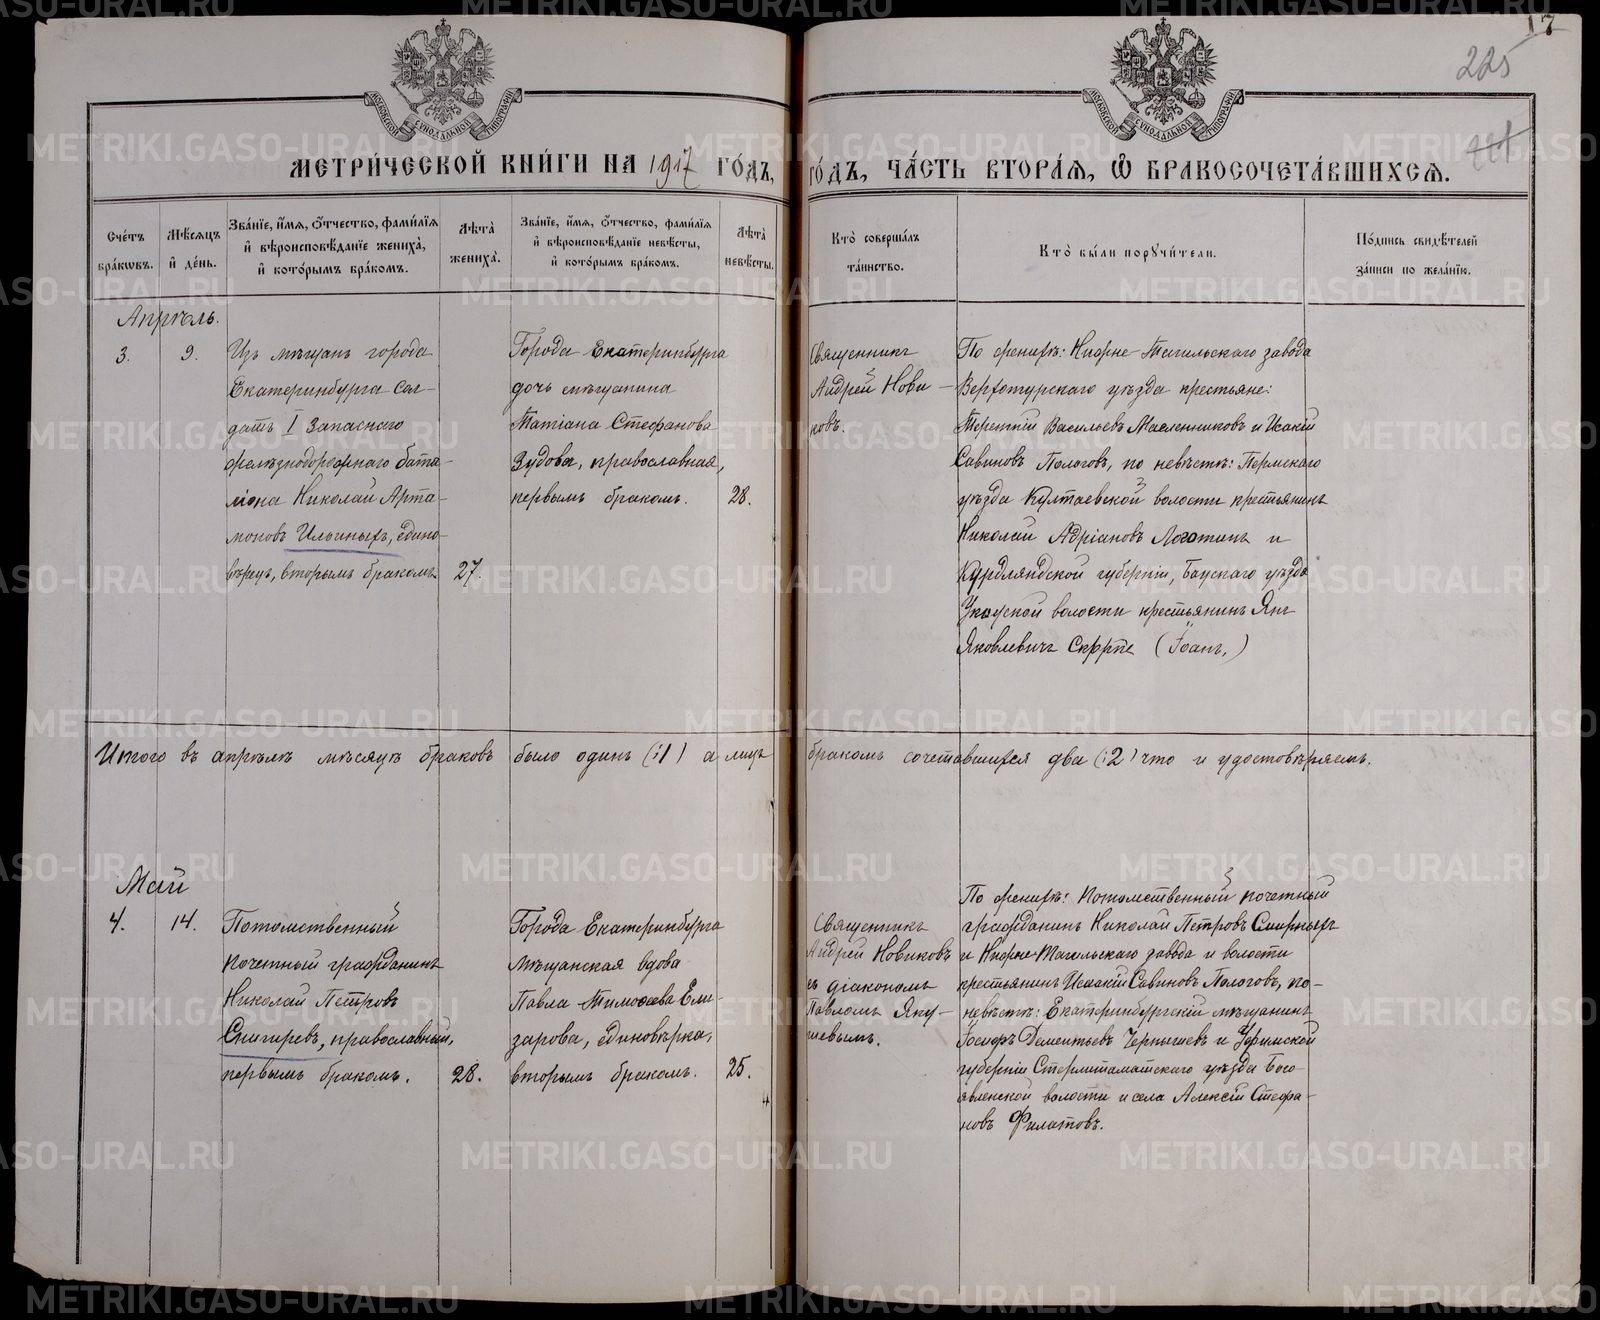 17
225
МЕТРИ́ЧЕСКОЙ КНИ́ГИ НА 1917 ГО́ДЪ,
ГО́ДЪ, ЧА́СТЬ ВТОРА́Я, Ѡ҆ БРАКОСОЧЕТА́ВШИХСЯ.
Сче́тъ бра́ковъ.
Мѣ́сяцъ и҆ де́нь.
Зва́нїе, и҆́мя, ѻ҆́тчество, фами́лїя и҆ вѣроисповѣ́данїе жениха̀, и҆ кото́рымъ бра́комъ.
Лѣ́та̀ жениха̀.
Зва́нїе, и҆́мя, ѻ҆́тчество, фами́лїя и҆ вѣроисповѣ́данїе невѣ́сты, и҆ кото́рымъ бра́комъ.
Лѣ́та̀ невѣ́сты.
Кто̀ соверша́лъ та́инство.
Кто̀ бы́ли порꙋчи́тели.
По́дпись свидѣ́телей за́писи по жела́нїю.
Апрѣль.
3.
9.
Изъ мѣщанъ города
Екатеринбурга сол-
датъ I Запаснаго
желѣзнодорожнаго бата-
ліона Николай Арта-
моновъ Ильиныхъ, едино-
вѣрецъ, вторымъ бракомъ.
27.
Города Екатеринбурга
дочь мѣщанина
Татіана Стефанова
Зудова, православная,
первымъ бракомъ.
28.
Священникъ
Андрей Нови-
ковъ.
По женихѣ: Нижне-Тагильскаго завода
Верхотурскаго уѣзда крестьяне:
Терентій Васильевъ Масленниковъ и Исакій
Савиновъ Пологовъ, по невѣстѣ: Пермскаго
уѣзда Култаевской волости крестьянинъ
Николай Адріановъ Логотинъ и
Курляндской губерніи, Баускаго уѣзда
волости крестьянинъ Янъ
Яковлевичъ (Іоанъ,)
Итого въ апрѣлѣ мѣсяцѣ браковъ было одинъ (:1) а лицъ
бракомъ сочетавшихся два (:2) что и удостовѣряемъ.
Май
4.
14.
Потомственный
почетный гражданинъ
Николай Петровъ
Снигиревъ, православный,
первымъ бракомъ.
28.
Города Екатеринбурга
мѣщанская вдова
Павла Тимоѳеева Ели-
зарова, единовѣрка,
вторымъ бракомъ.
25.
Священникъ
Андрей Новиковъ
съ діакономъ
Павломъ Яку-
шевымъ.
По женихѣ: Потомственный почетный
гражданинъ Николай Петровъ Смирныхъ
и Нижне-Тагильскаго завода и волости
крестьянинъ Исаакій Савиновъ Пологовъ, по-
невѣстѣ: Екатеринбургскій мѣщанинъ
Іосифъ Дементьевъ Чернышевъ и Уфимской
губерніи Стерлитамакскаго уѣзда Бого-
явленской волости и села Алексій Стефа-
новъ Филатовъ.
METRIKI.GASO-URAL.RU